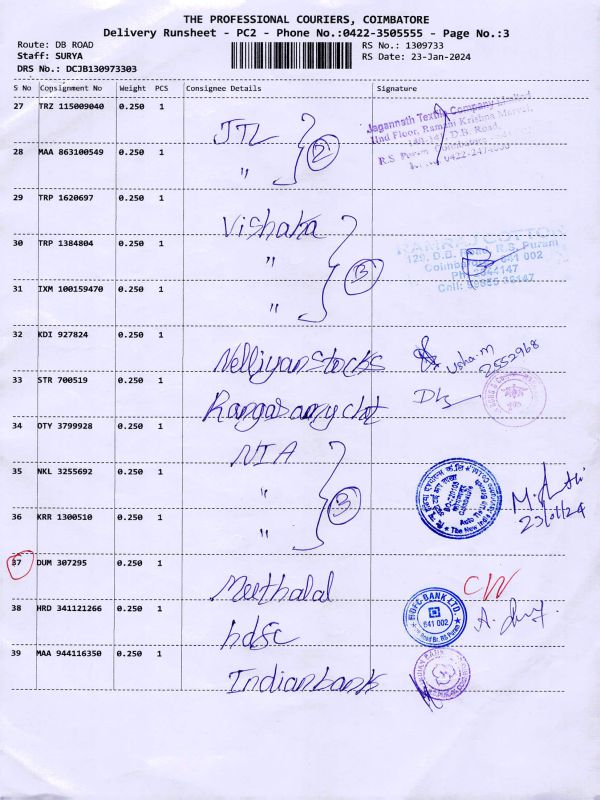 THE PROFESSIONAL COURIERS, COIMBATORE
Delivery Runsheet - PC2 - Phone No.:0422-3505555 - Page No.:3
Route: DB ROAD
RS No.: 1309733
Staff: SURYA
RS Date: 23-Jan-2024
DRS No.: DCJB130973303
S No Consignment No Weight PCS Consignee Details Signature
27 TRZ 115009040 0.250 1 JTL
Jagannath Textile Company Limited
IInd Floor, Ramani Krishna
D.B. Road,
28 MAA 863100549 0.250 1 " 2
29 TRP 1620697 0.250 1 Vishaka
30 TRP 1384804 0.250 1 " 3
RAMRAJ COTTON
129, D.B. Road, R.S. Puram
Coimbatore 641 002
31 IXM 100159470 0.250 1 "
32 KDI 927824 0.250 1 Nelliyan stocks Usha.M
2552968
33 STR 700519 0.250 1 Rangasamy chet
34 OTY 3799928 0.250 1 NIA
35 NKL 3255692 0.250 1 " 3
23/01/24
36 KRR 1300510 0.250 1 "
37 DUM 307295 0.250 1 Meethalal CW
38 HRD 341121266 0.250 1 hdfc
HDFC BANK LTD.
641 002
39 MAA 944116350 0.250 1 Indian bank